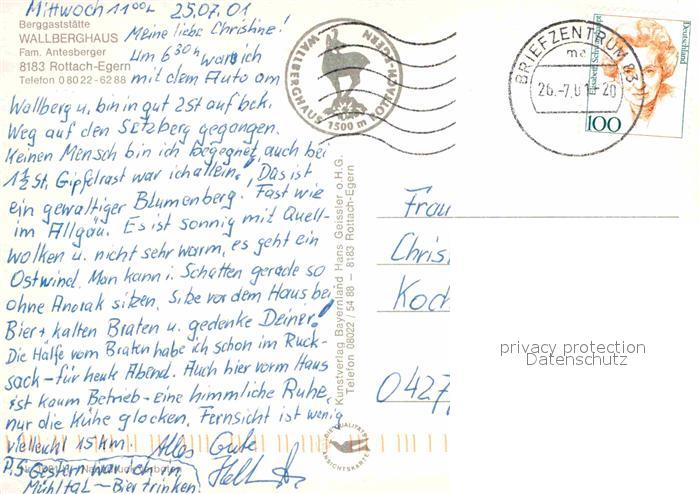 Mittwoch 11⁰⁰h 25.07.01
Berggaststätte
WALLBERGHAUS
Fam. Antesberger
8183 Rottach-Egern
Telefon 08022-6288
Meine liebe Christine!
Um 6³⁰h war ich
mit dem Auto am
Wallberg u. bin in gut 2St auf bek.
Weg auf den Setzberg gegangen.
Keinen Menschen bin ich begegnet, auch bei
1½ St. Gipfelrast war ich allein! Das ist
ein gewaltiger Blumenberg. Fast wie
im Allgäu. Es ist sonnig mit Quell-
wolken u. nicht sehr warm, es geht ein
Ostwind. Man kann i. Schatten gerade so
ohne Anorak sitzen. Sitze vor dem Haus bei
Bier + kalten Braten u. gedenke Deiner!
Die Hälfte vom Braten habe ich schon im Ruck-
sack - für heute Abend. Auch hier vorm Haus
ist kaum Betrieb - eine himmliche Ruhe,
nur die Kühe glocken. Fernsicht ist wenig
vielleicht 15 km. Alles Gute
P.S. Gestern war ich im
Mühltal - Bier trinken.
WALLBERGHAUS 1500 m ROTTACH-EGERN
Kunstverlag Bayernland Hans Geissler o.H.G.
Telefon 08022/54 88 — 8183 Rottach-Egern
DIE QUALITÄTS
ANSICHTSKARTE
BRIEFZENTRUM 83
26.-7.01-20
Deutschland
100
Frau
Chris
Koc
privacy protection
Datenschutz
0427